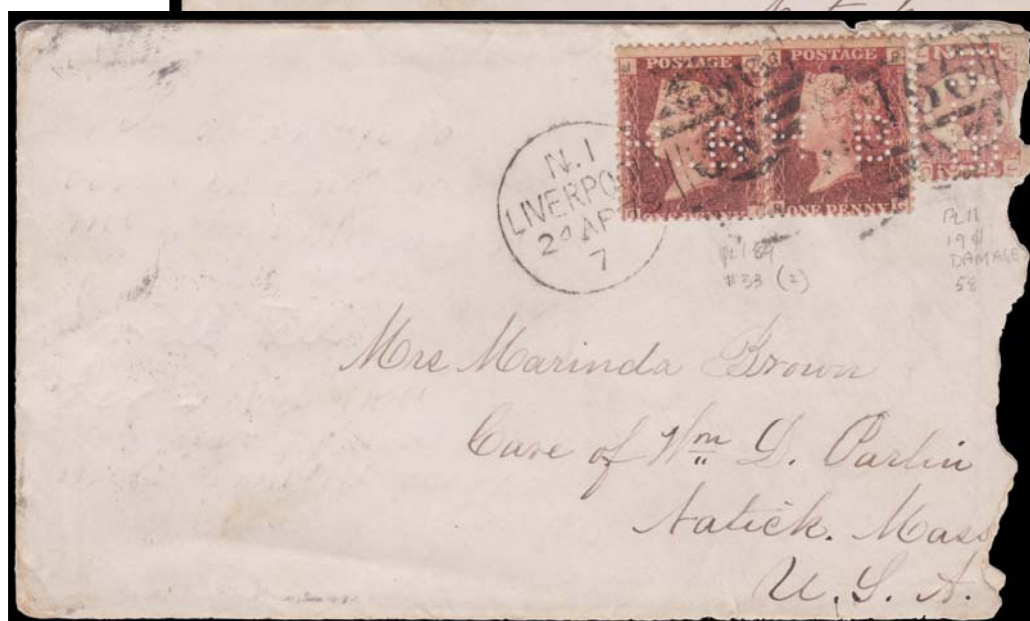 POSTAGE
POSTAGE
ONE PENNY
N.1
LIVERPO
24 AP
7
PL 189
#33 (2)
PL 11
DAMAGE
58
Mrs Marinda Brown
Care of Wm D. Parlin
Natick. Mass
U. S. A.